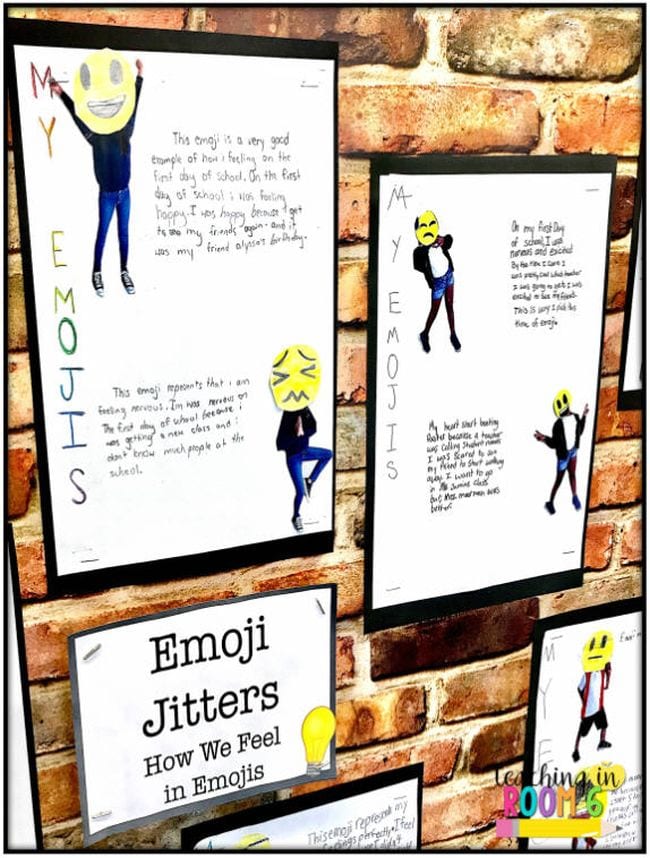 MY EMOJIS
This emoji is a very good
example of how i feeling on the
first day of school. On the first
day of school i was feeling
happy. I was happy because I get
to see my friends again. and it
was my friend alyssa's birthday.
This emoji represents that i am
feeling nervous. Im was nervous on
The first day of school because i
was getting a new class and i
don't know much people at the
school.
MY EMOJIS
On my first Day
of school, I was
nervous and excited
By the time I came I
was pretty
I was going to get. I was
excited to see my friends.
This is why I pick this
of emoji.
My heart start beating
faster because a teacher
was calling Student names
I was scared to see
my friend to start walking
away. I want to go
in Mr class
but was
better.
Emoji
Jitters
How We Feel
in Emojis
MY E
This emoji represents my
feelings perfectly. I feel
teaching in
ROOM 6